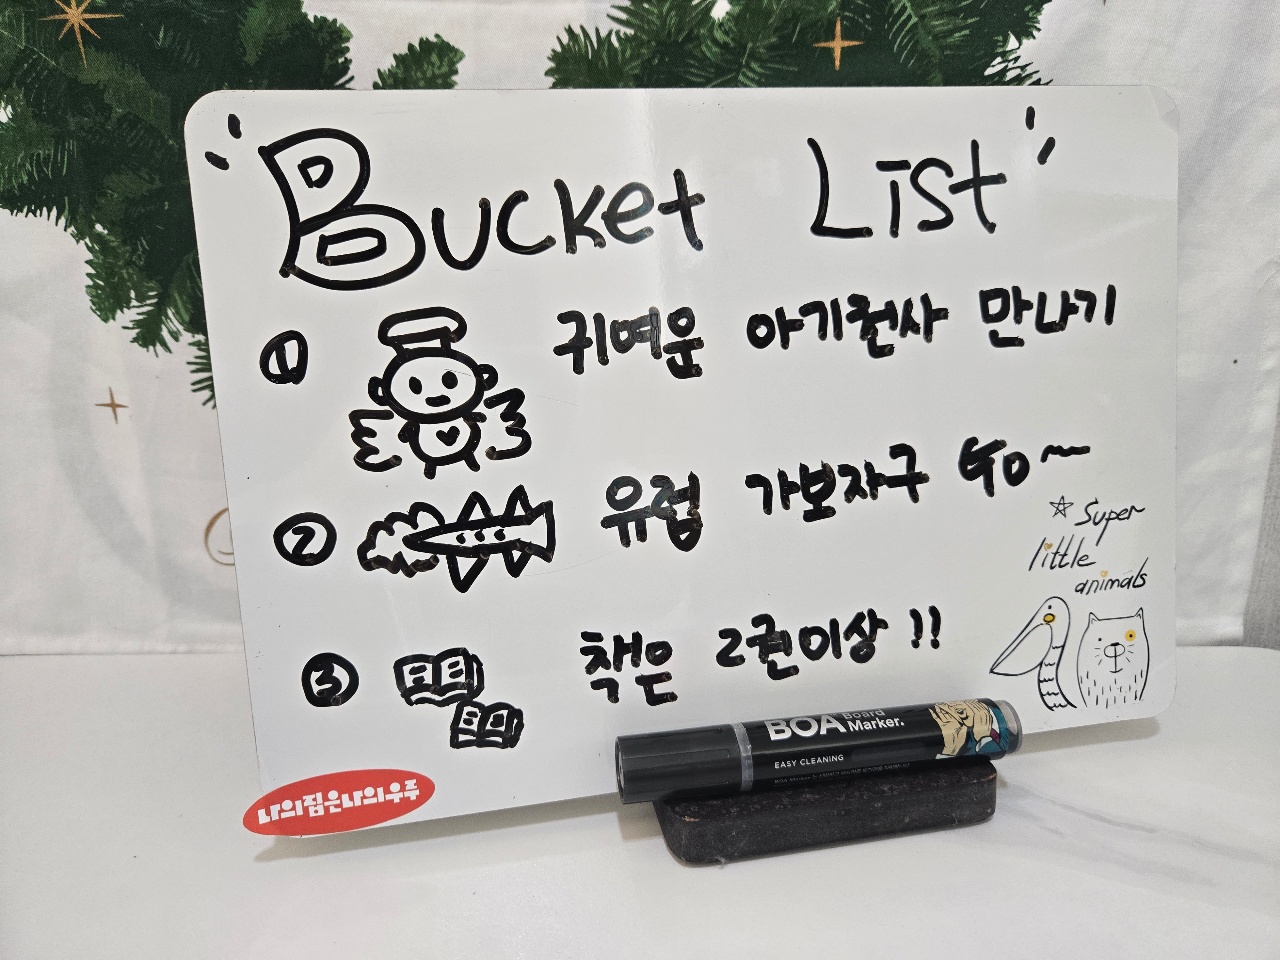 Bucket List
① 귀여운 아기천사 만나기
② 유럽 가보자구 GO~
☆ Super
little
animals
③ 책은 2권이상 !!
BOA Board
Marker.
EASY CLEANING
나의집은나의우주